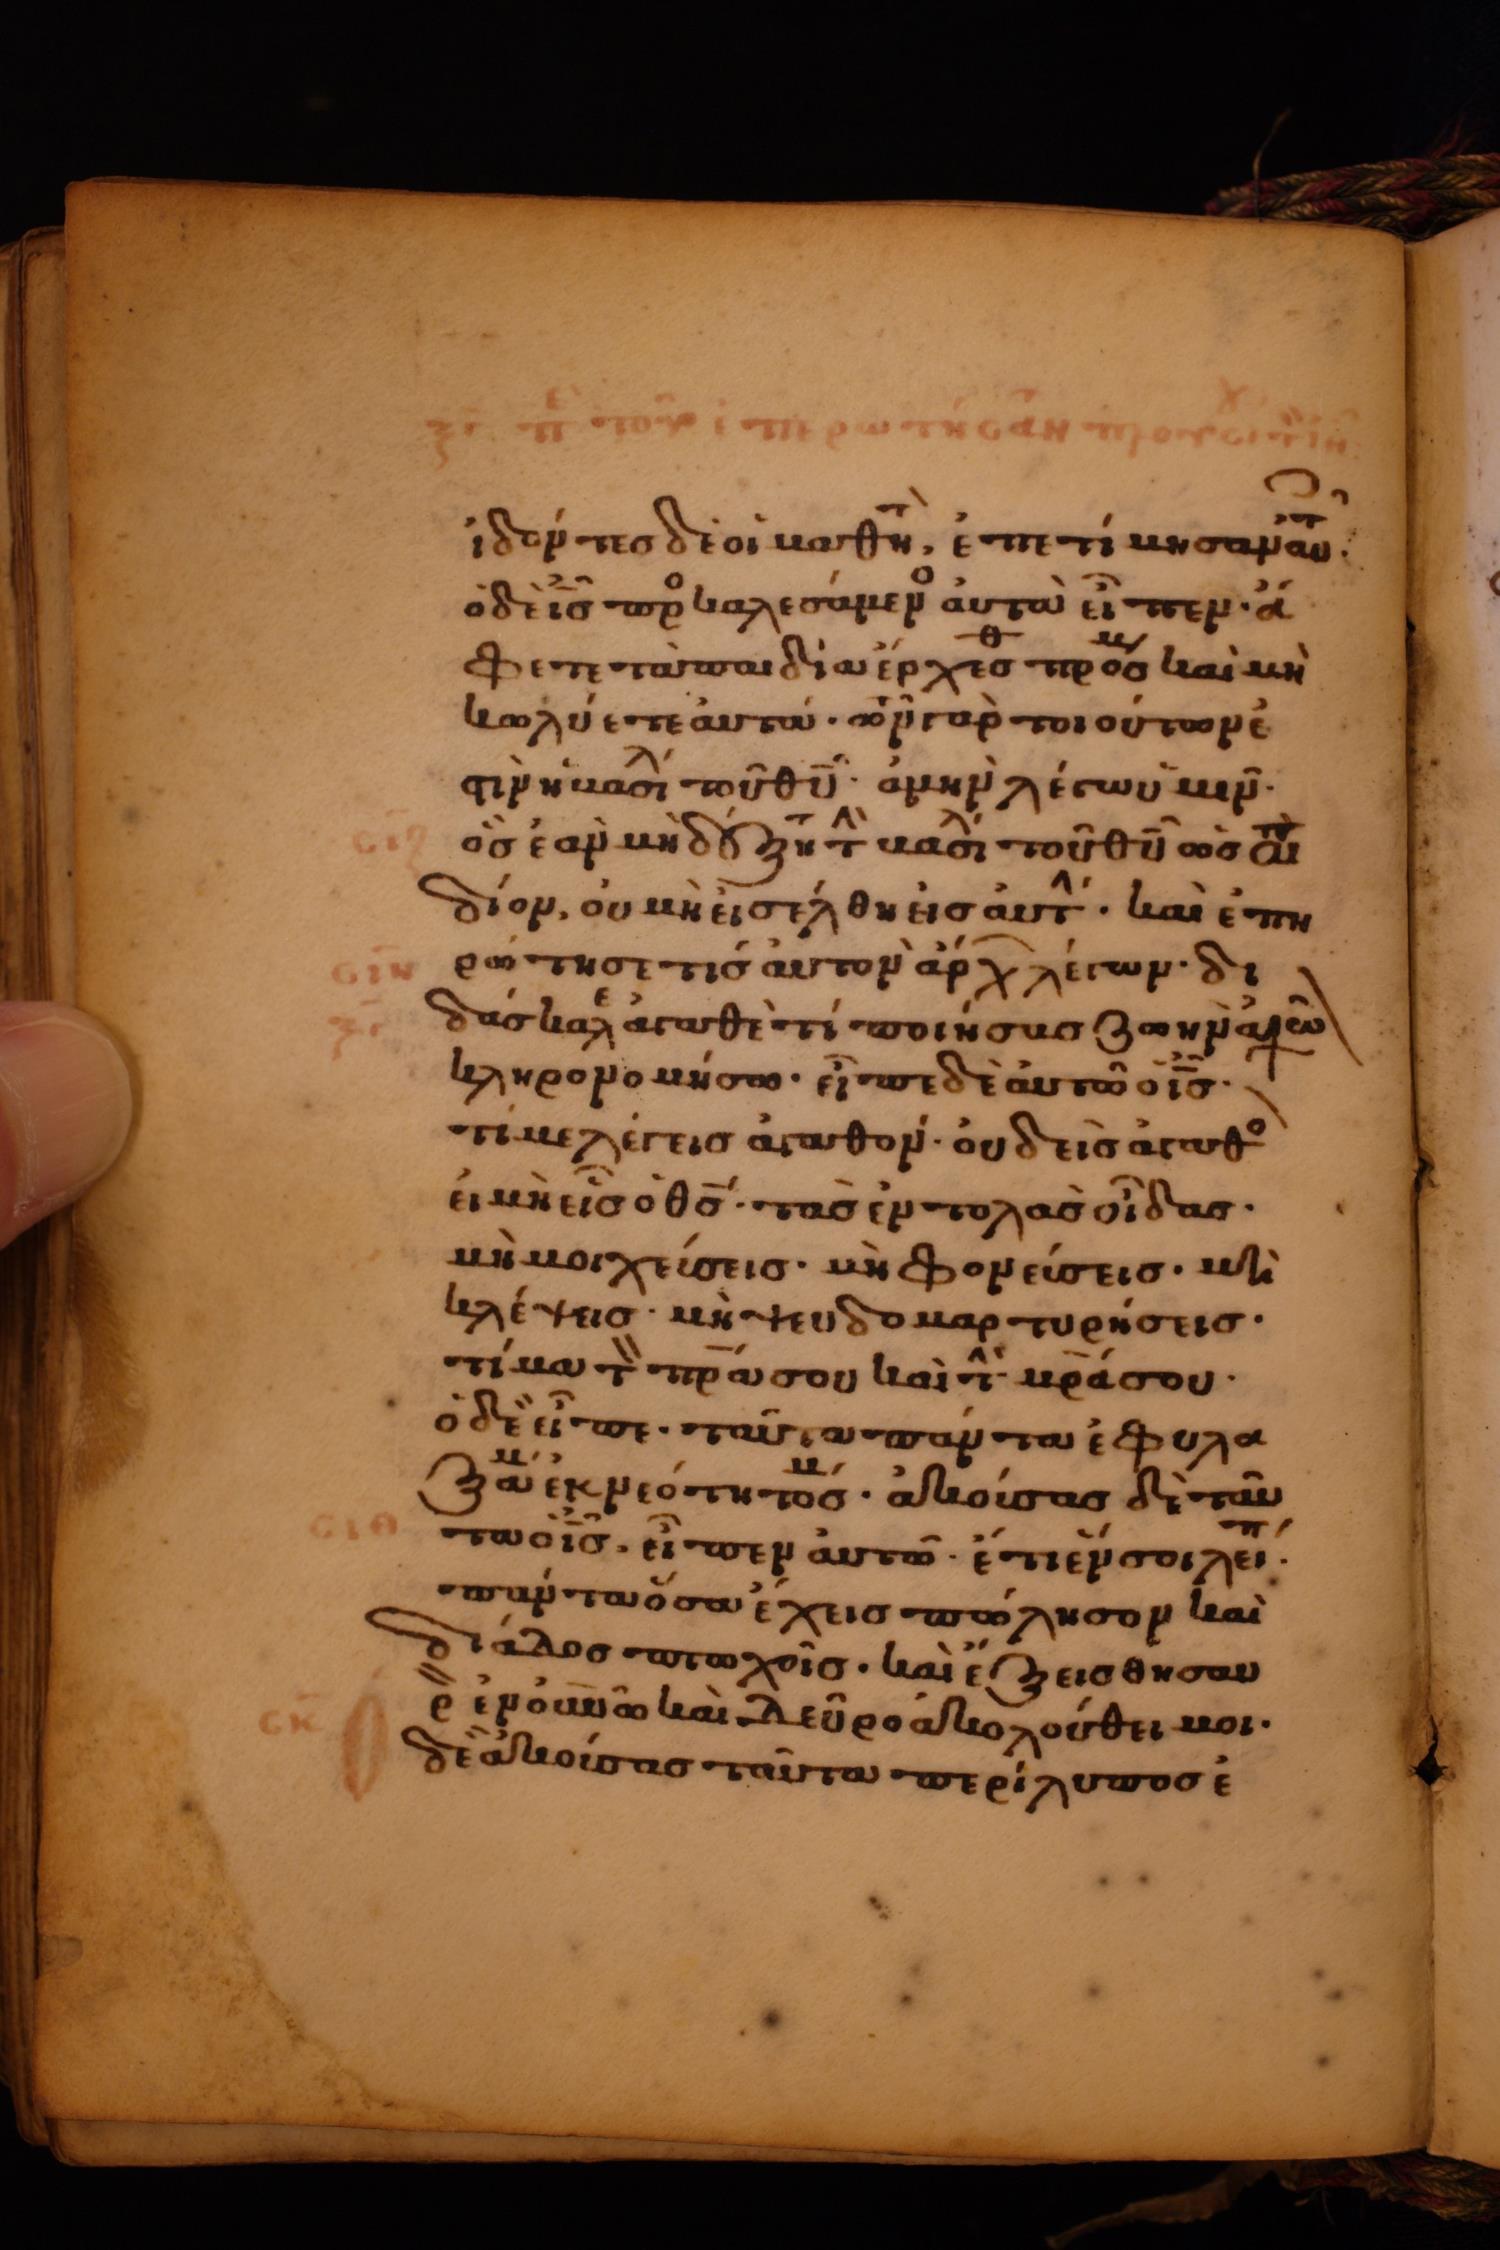 ἰδόντες δὲ οἱ μαθητ, ἐπετίμησαν αὐτ·
ὁ δὲ ι̅ς̅ προσκαλεσάμενο αὐτὰ εἶπεν· ἄ
φετε τὰ παιδία ἔρχεσθ πρός μ καὶ μὴ
κωλύετε αὐτά· τῶν γὰρ τοιούτων ἐ
στὶν ἡ βασιλ τοῦ θ̅υ̅· ἀμὴν λέγω ὑμῖν·
σιζ ὃς ἐὰν μὴ δέξητ τ βασιλ τοῦ θ̅υ̅ ὡς παι
δίον, οὐ μὴ εἰσέλθη εἰς αὐτ· καὶ ἐπη
σιη ρώτησε τίς αὐτὸν ἄρχ λέγων· δι
ξ δάσκαλε ἀγαθὲ τί ποιήσας ζωὴν αἰων
κληρονομήσω· εἶπε δὲ αὐτῶ ὁ ι̅ς̅·
τί με λέγεις ἀγαθόν· οὐδεὶς ἀγαθο
εἰ μὴ εἷς ὁ θ̅ς̅· τὰς ἐντολὰς οἶδας·
μὴ μοιχεύσεις· μὴ φονεύσεις· μὴ
κλέψεις· μὴ ψευδομαρτυρήσεις·
τίμα τ π̅ρ̅α̅ σου καὶ τ μ̅ρ̅α̅ σου·
ὁ δὲ εἶπε· ταῦτα πάντα ἐφυλα
ξάμ ἐκ νεότητός μ· ἀκούσας δὲ ταῦ
σιθ τα ὁ ι̅ς̅, εἶπεν αὐτῶ· ἔτι ἕν σοι λείπ·
πάντα ὅσα ἔχεις πώλησον καὶ
διάδος πτωχοῖς· καὶ ἕξεις θησαυ
ρ ἐν οὐ̅ν̅ῶ καὶ δεῦρο ἀκολούθει μοι·
σκ Ο δὲ ἀκούσας ταῦτα περίλυπος ἐ